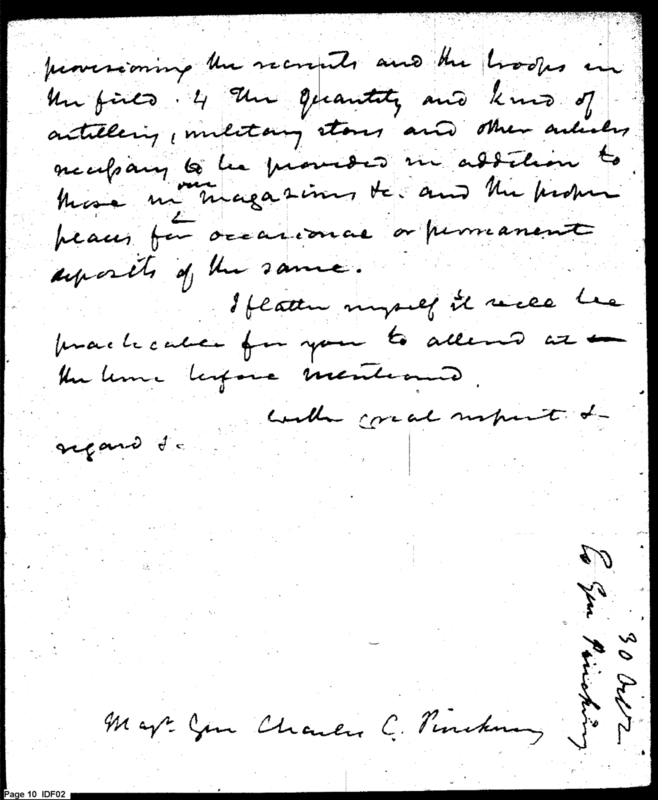 provisioning the recruits and the troops in
the field. 4 The quantity and kind of
artillery, military stores and other articles
necessary to be provided in addition to
those in our magazines &c. and the proper
places for occasional or permanent
deposits of the same.
I flatter myself it will be
practicable for you to attend at
the time before mentioned.
With great respect &
regard &c
Majr. Gen Charles C. Pinckney
30 Octr
to Gen Pinckney
Page 10 IDF02